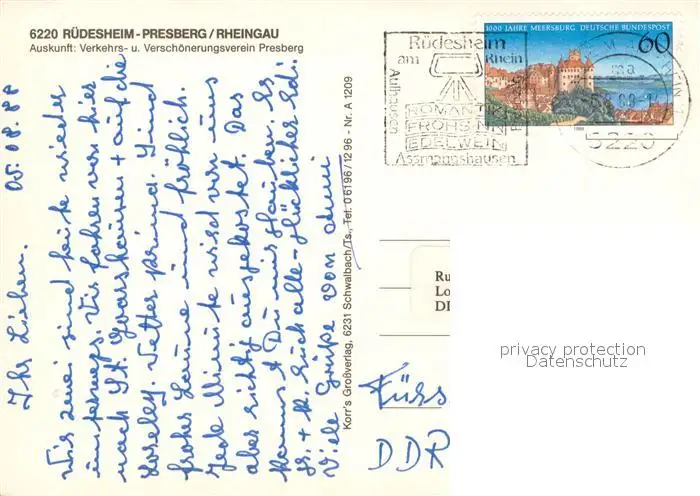 6220 RÜDESHEIM-PRESBERG/RHEINGAU
Auskunft: Verkehrs- u. Verschönerungsverein Presberg
05.08.88
Ihr Lieben.
Wir zwei sind heute wieder
unterwegs. Wir fahren von hier
nach St. Goarshausen + auf die
Loreley. Wetter prima. Sind
frohes Laune und fröhlich.
Jede Minute wird von uns
aber richtig ausgekostet. Das
kannst Du mir glauben. Es
Euch alle glücklicher
Viele Grüße von
Korr's Großverlag, 6231 Schwalbach/Ts., Tel. 06196/1296 - Nr. A 1209
Rüdesheim
am Rhein
Aulhausen
ROMANTIK
FROHSINN
EDELWEIN
Assmannshausen
1000 JAHRE MEERSBURG DEUTSCHE BUNDESPOST
60
1988
6220
Ru
Lo
DI
Fürs
DDR
privacy protection
Datenschutz